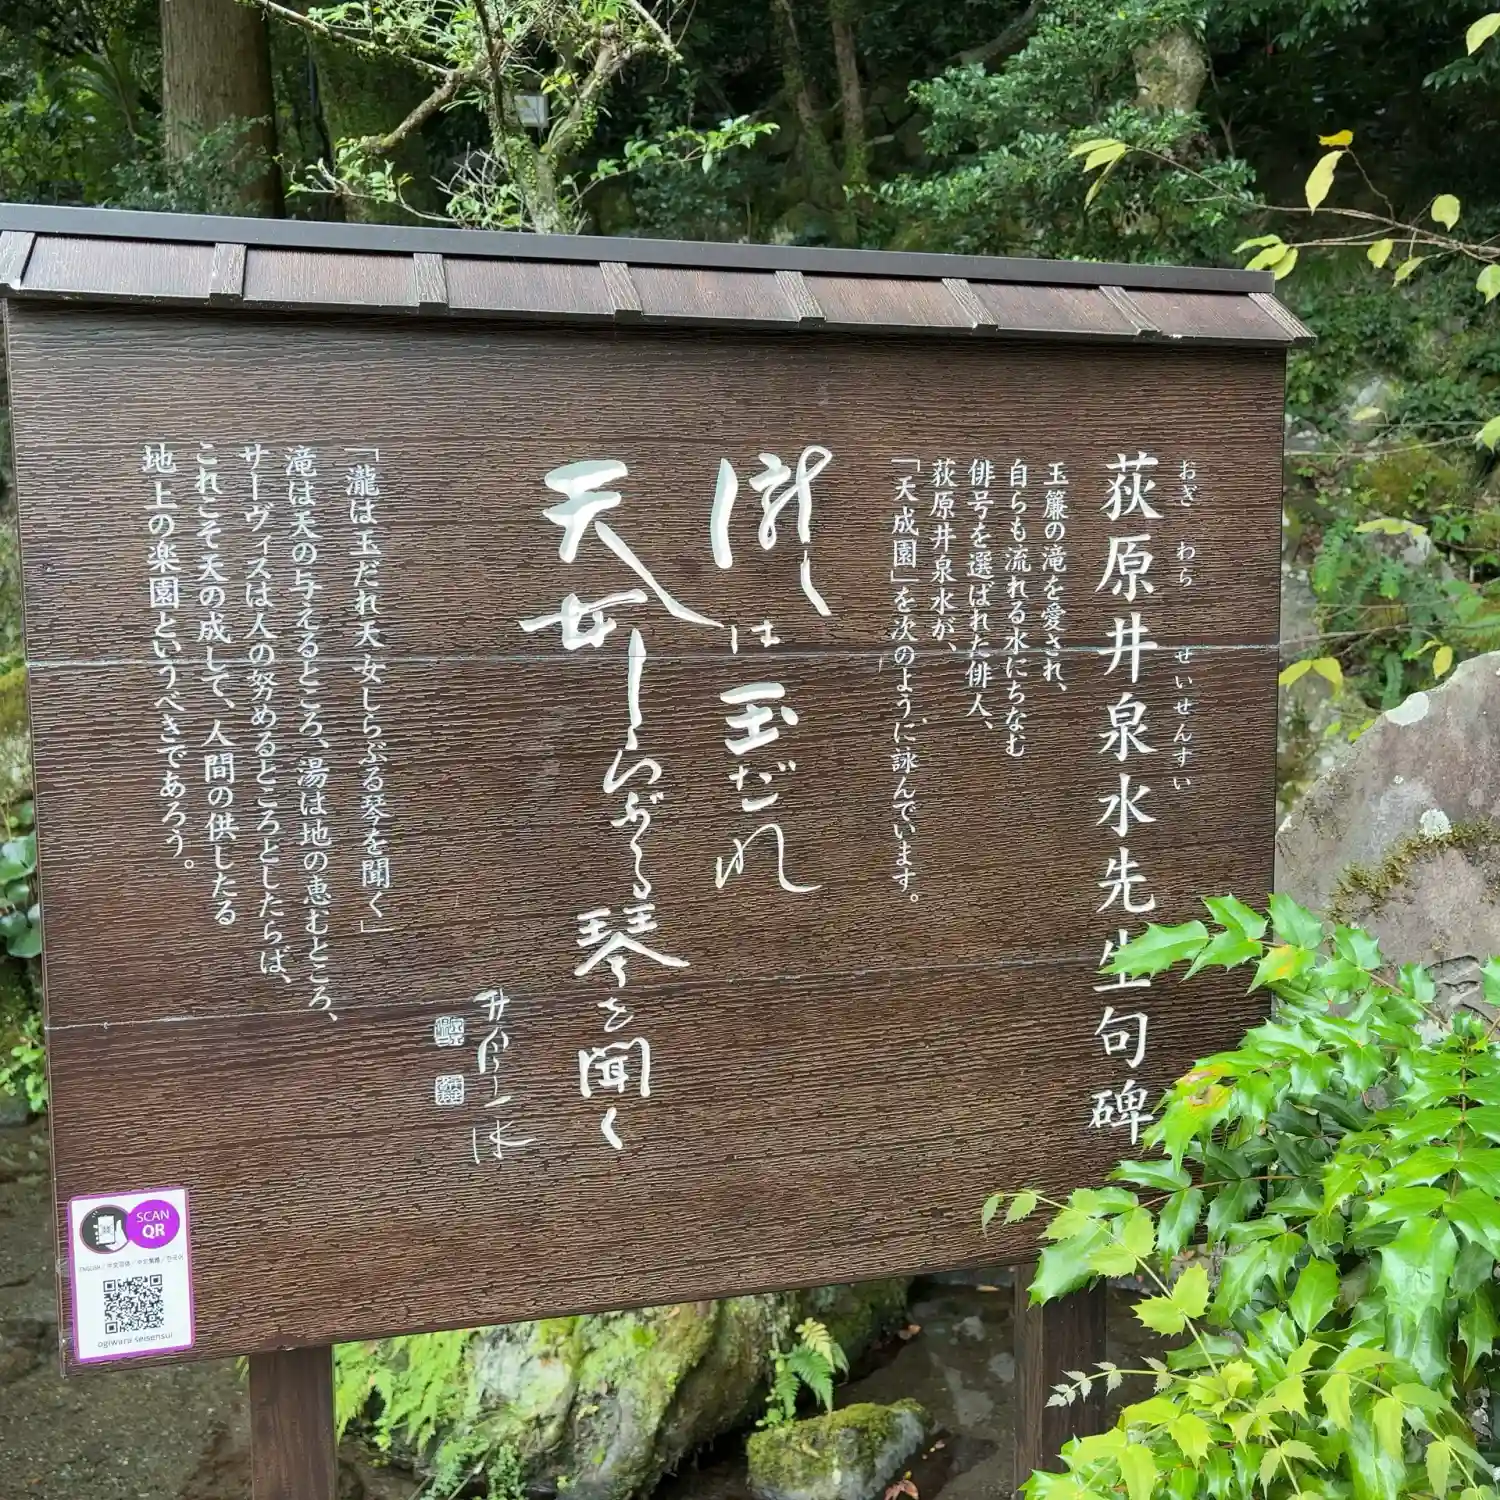 荻原井泉水先生句碑
おぎ わら せいせんすい
玉簾の滝を愛され、
自らも流れる水にちなむ
俳号を選ばれた俳人、
荻原井泉水が、
「天成園」を次のように詠んでいます。
瀧は玉だれ
天女しらぶる琴を聞く
井泉水
「瀧は玉だれ天女しらぶる琴を聞く」
滝は天の与えるところ、湯は地の恵むところ、
サーヴィスは人の努めるところとしたらば、
これこそ天の成して、人間の供したる
地上の楽園というべきであろう。
SCAN
QR
ENGLISH / 中文简体 / 中文繁體 / 한국어
ogiwara seisensui